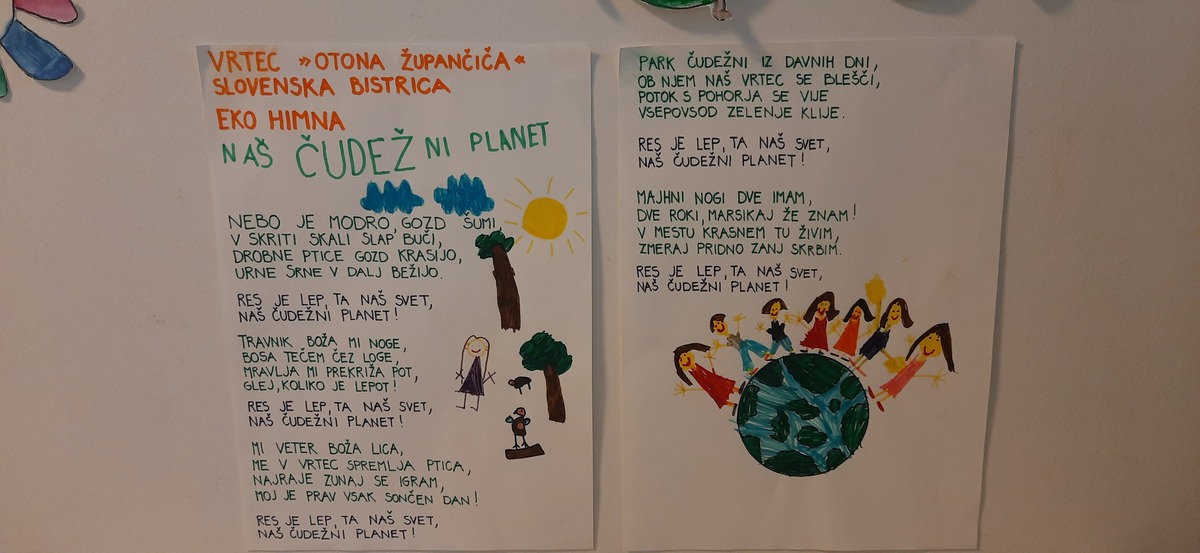 VRTEC »OTONA ŽUPANČIČA«
SLOVENSKA BISTRICA
EKO HIMNA
NAŠ ČUDEŽNI PLANET
NEBO JE MODRO, GOZD ŠUMI,
V SKRITI SKALI SLAP BUČI,
DROBNE PTICE GOZD KRASIJO,
URNE SRNE V DALJ BEŽIJO.
RES JE LEP, TA NAŠ SVET,
NAŠ ČUDEŽNI PLANET!
TRAVNIK BOŽA MI NOGE,
BOSA TEČEM ČEZ LOGE,
MRAVLJA MI PREKRIŽA POT,
GLEJ, KOLIKO JE LEPOT!
RES JE LEP, TA NAŠ SVET,
NAŠ ČUDEŽNI PLANET!
MI VETER BOŽA LICA,
ME V VRTEC SPREMLJA PTICA,
NAJRAJE ZUNAJ SE IGRAM,
MOJ JE PRAV VSAK SONČEN DAN!
RES JE LEP, TA NAŠ SVET,
NAŠ ČUDEŽNI PLANET!
PARK ČUDEŽNI IZ DAVNIH DNI,
OB NJEM NAŠ VRTEC SE BLEŠČI,
POTOK S POHORJA SE VIJE
VSEPOVSOD ZELENJE KLIJE.
RES JE LEP, TA NAŠ SVET,
NAŠ ČUDEŽNI PLANET!
MAJHNI NOGI DVE IMAM,
DVE ROKI, MARSIKAJ ŽE ZNAM!
V MESTU KRASNEM TU ŽIVIM,
ZMERAJ PRIDNO ZANJ SKRBIM.
RES JE LEP, TA NAŠ SVET,
NAŠ ČUDEŽNI PLANET!